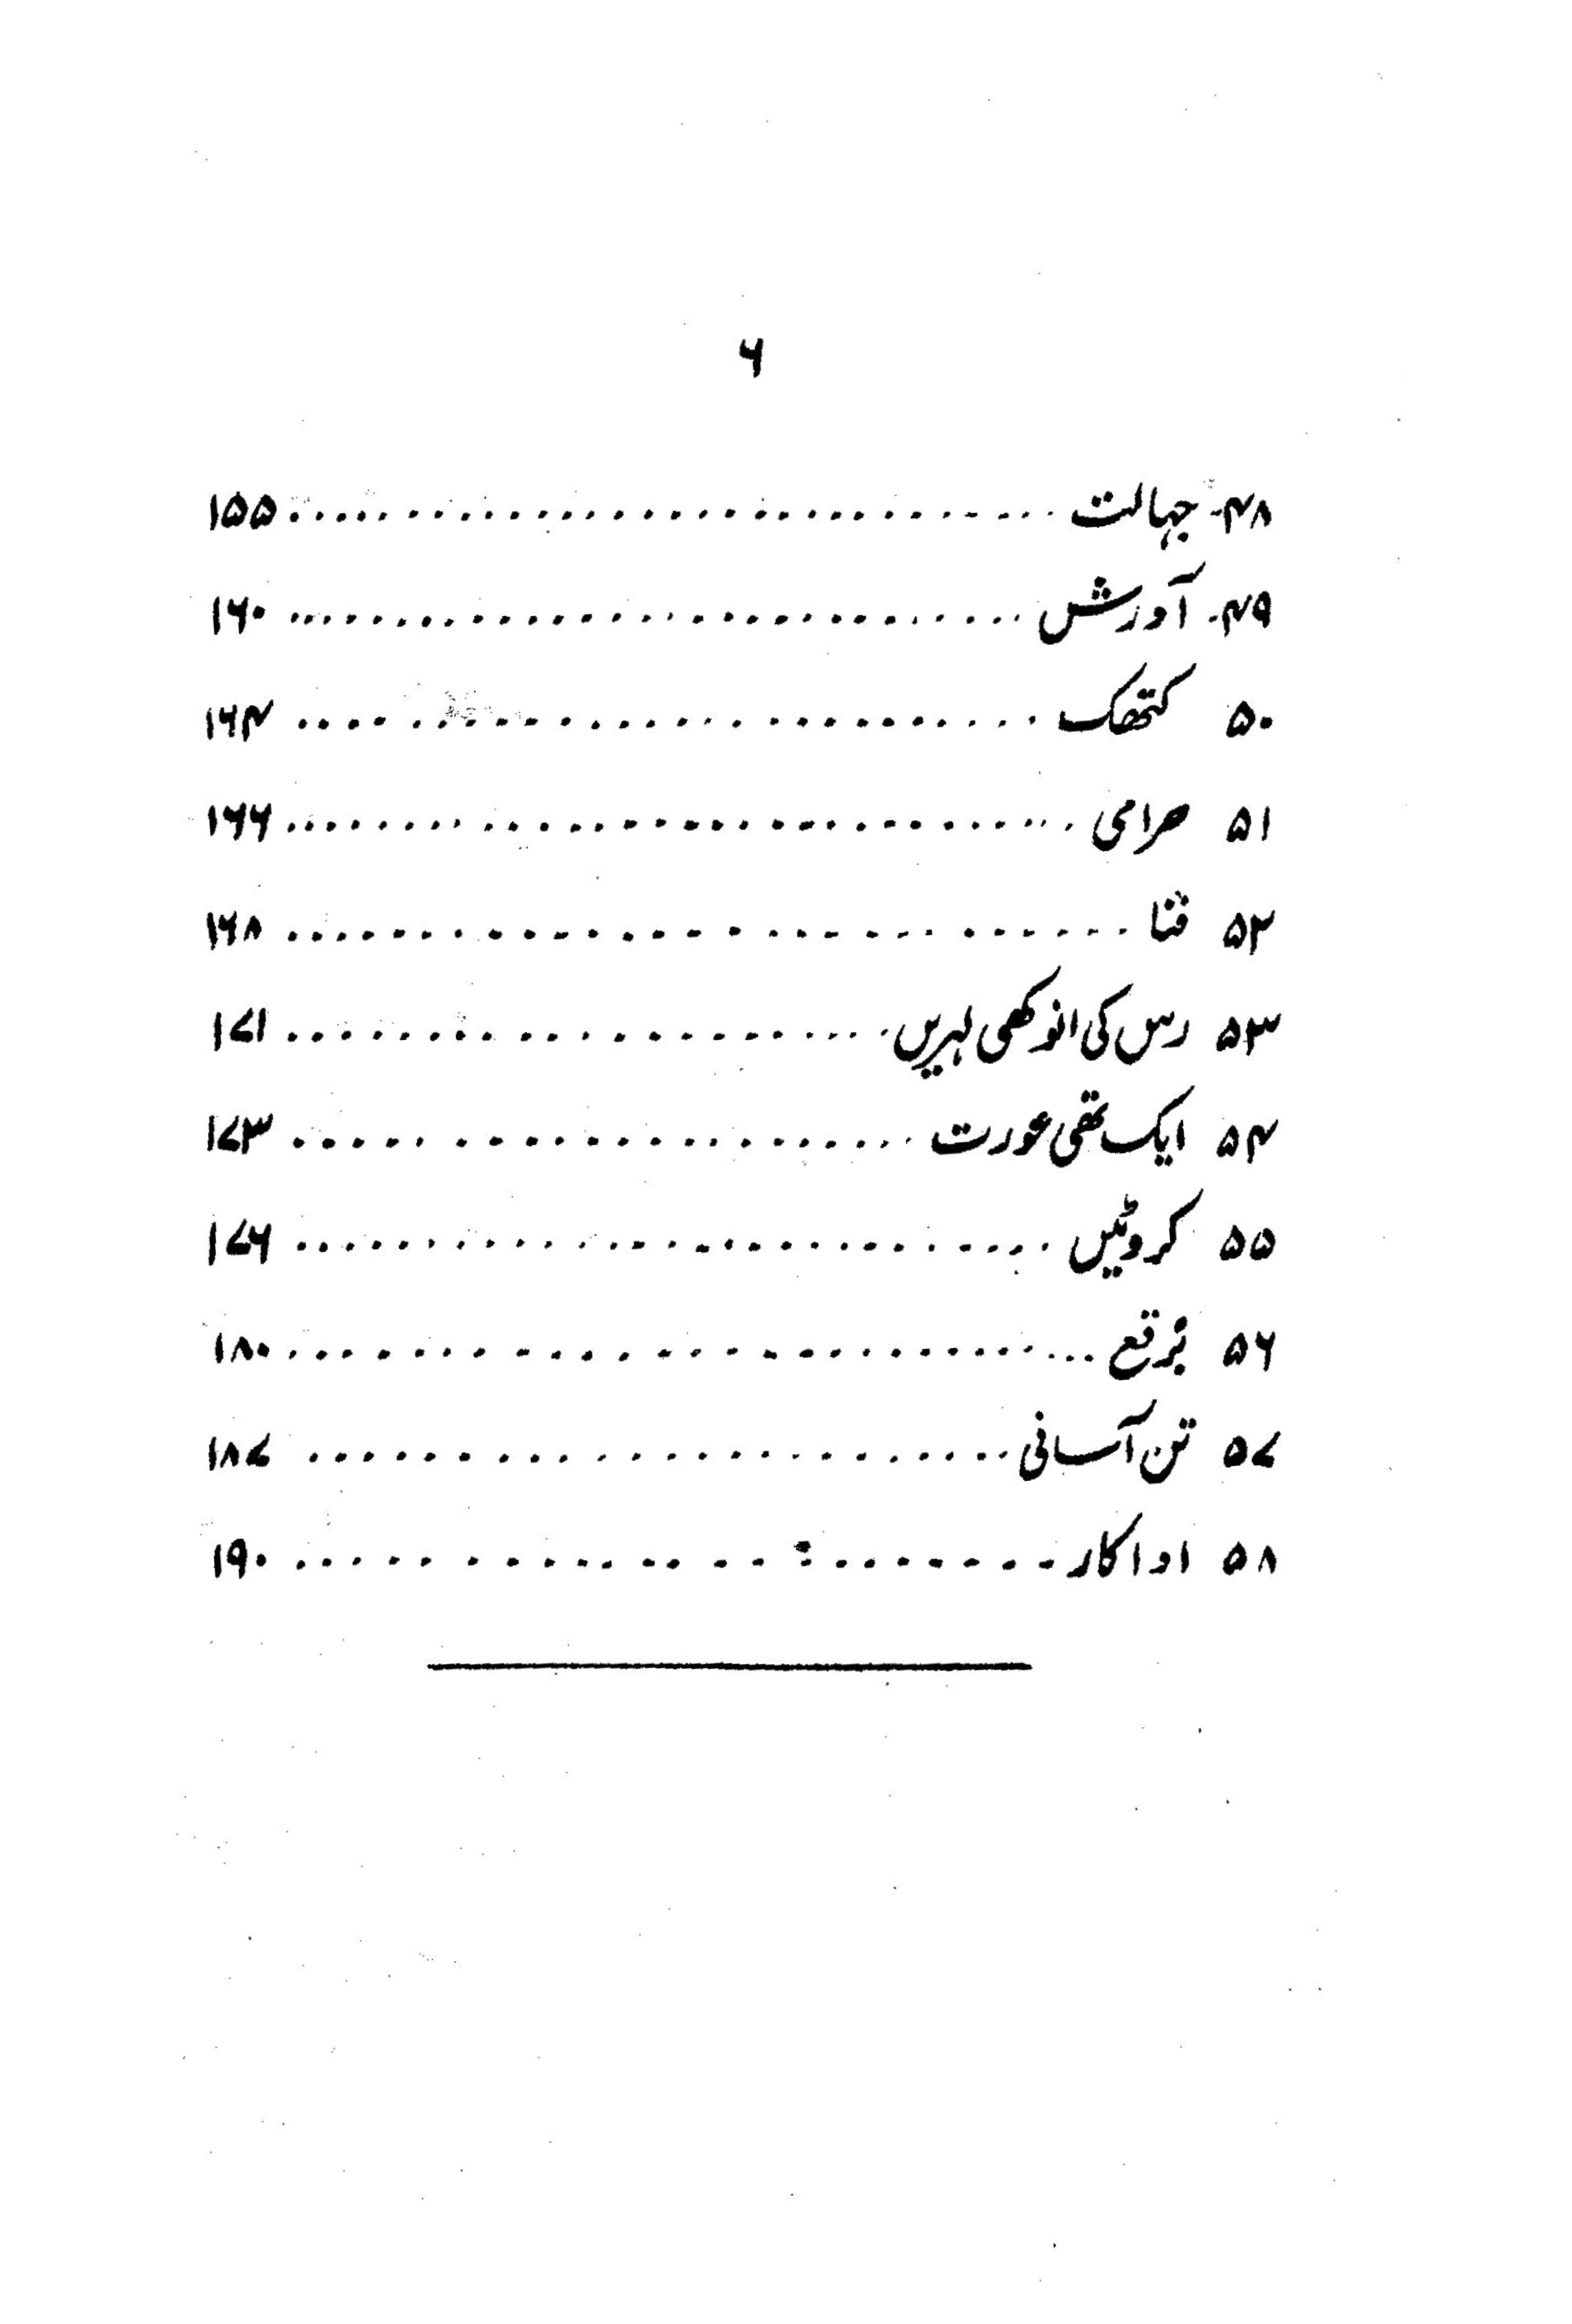 ۶
۴۸۔ جہالت .............................. ۱۵۵
۴۹۔ آورش .............................. ۱۶۰
۵۰ کتھک .............................. ۱۶۴
۵۱ حرامی .............................. ۱۶۶
۵۲ فنا .............................. ۱۶۸
۵۳ رس کی انوکھی لہریں .............................. ۱۷۱
۵۴ ایک تھی عورت .............................. ۱۷۳
۵۵ کروٹیں .............................. ۱۷۶
۵۶ بُرقع .............................. ۱۸۰
۵۷ تن آسانی .............................. ۱۸۷
۵۸ اداکار .............................. ۱۹۰